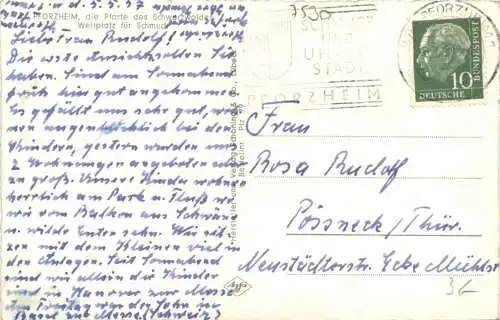 den 5. 5. 57
PFORZHEIM, die Pforte des Schwarzwaldes
Weltplatz für Schmuck
Liebe Frau Rudolf!
Die erste Ansicht sollen Sie
haben. Sind am Sonnabend
früh hier gut angekommen.
Es gefällt uns sehr gut, wir
waren augenblicklich bei den
Kindern, gestern wurden uns
2 Wohnungen angeboten
zu groß. Unsere Kinder wohnen
herrlich am Park u. Fluß wo
wir vom Balkon aus Schwäne
u. wilde Enten sehn. Wir
mit dem Kleinen viel in
den Anlagen. Seit Sonnabend
sind wir allein die Kinder
sind in Hanover zur Messe
den Freitag war der Sohn in
Basel zur Messe (Schweiz)
7530
SCHMUCK
UND
UHREN
STADT
PFORZHEIM
PFORZHEIM
10
DEUTSCHE BUNDESPOST
Frau
Rosa Rudolf
Pössneck/Thür.
Neustädterstr. Ecke Mühlstr
36
Agfa